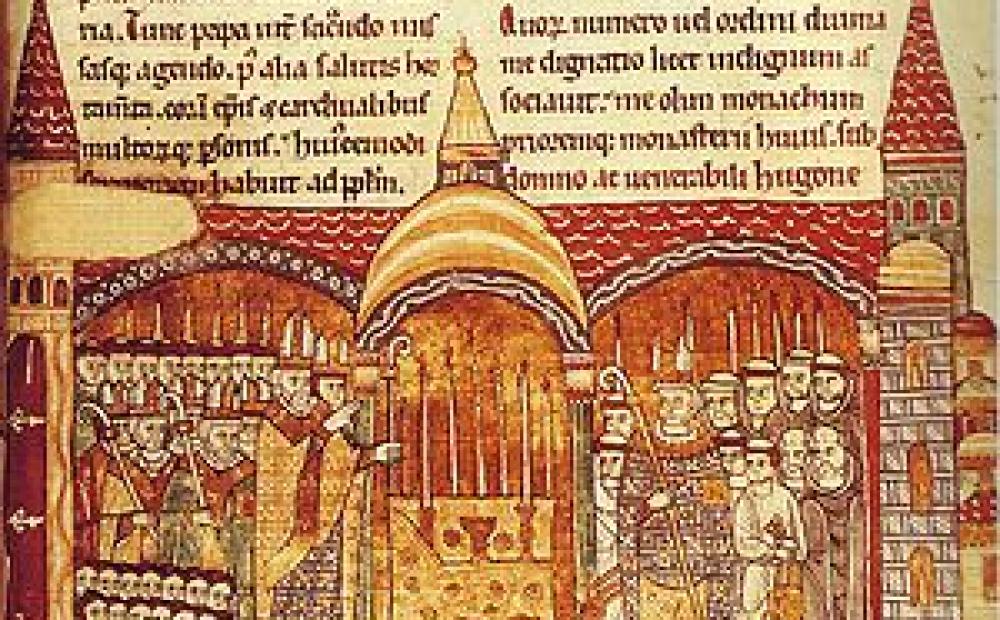 ria. Tunc papa int̄ sac̄ndo mis
sasq; agendo. p̄ alia salutis ho
corā ep̄is & cardinalibus
multoꝝq; ꝑsonis. hui᾽cemodi
habuit ad pp̄lm.
Quoꝝ numero uel ordini diuina
me dignatio licet indignum as
sociauit. me olim monachum
prioremq; monasterii huius. sub
domno ac uenerabili hugone